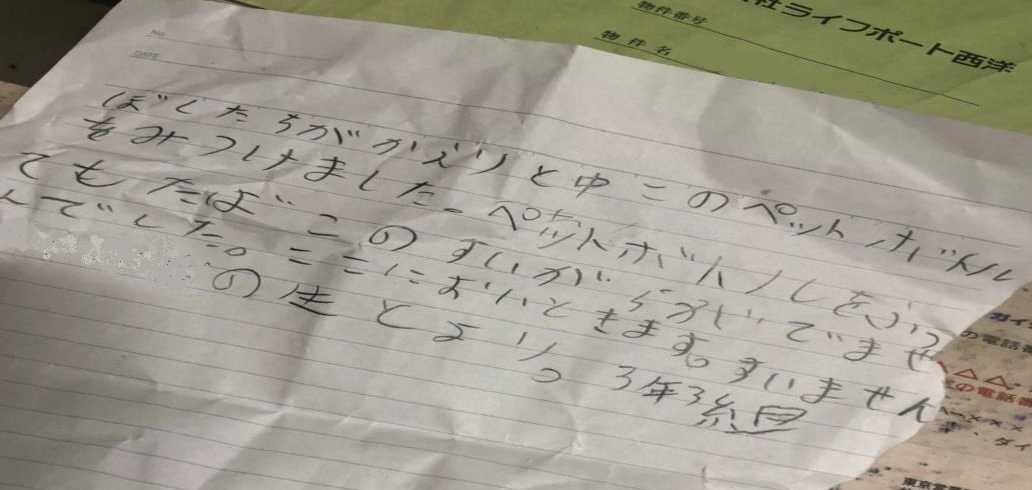 社ライフポート西洋
物件番号
物件名
NO.
DATE
ぼしたちがかえりとゆこのペットボドル
をみつけました-ペットボトルをふっ
てもたばこのすいがらがでませ
んでした。ここにおいときます。すいません
の生とより。3年3組
ガイ
の電話番
△△
の電話番
×××
・タイ
東京営業